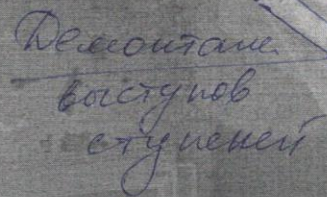 Демонтаж
выступов
ступеней